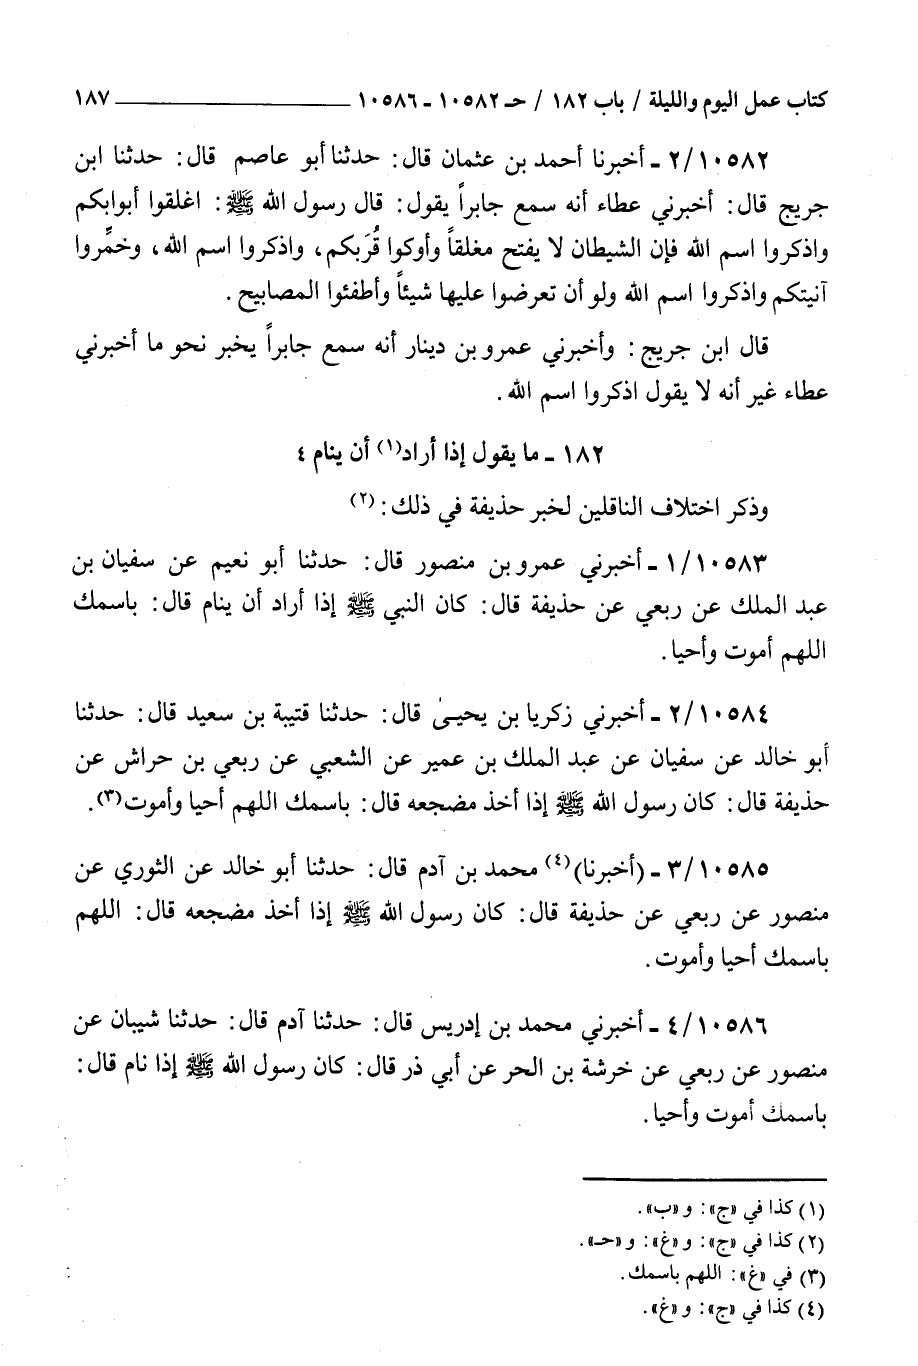 كتاب عمل اليوم والليلة / باب ١٨٢ / حـ ١٠٥٨٢ - ١٠٥٨٦ ــــــــــــــــــــ ١٨٧
٢/١٠٥٨٢ - أخبرنا أحمد بن عثمان قال: حدثنا أبو عاصم قال: حدثنا ابن
جريج قال: أخبرني عطاء أنه سمع جابراً يقول: قال رسول الله ﷺ: اغلقوا أبوابكم
واذكروا اسم الله فإن الشيطان لا يفتح مغلقاً وأوكوا قُرَبكم، واذكروا اسم الله، وخمِّروا
آنيتكم واذكروا اسم الله ولو أن تعرضوا عليها شيئاً وأطفئوا المصابيح.
قال ابن جريج: وأخبرني عمرو بن دينار أنه سمع جابراً يخبر نحو ما أخبرني
عطاء غير أنه لا يقول اذكروا اسم الله.
١٨٢ - ما يقول إذا أراد(١) أن ينام ٤
وذكر اختلاف الناقلين لخبر حذيفة في ذلك:(٢)
١/١٠٥٨٣ - أخبرني عمرو بن منصور قال: حدثنا أبو نعيم عن سفيان بن
عبد الملك عن ربعي عن حذيفة قال: كان النبي ﷺ إذا أراد أن ينام قال: باسمك
اللهم أموت وأحيا.
٢/١٠٥٨٤ - أخبرني زكريا بن يحيىٰ قال: حدثنا قتيبة بن سعيد قال: حدثنا
أبو خالد عن سفيان عن عبد الملك بن عمير عن الشعبي عن ربعي بن حراش عن
حذيفة قال: كان رسول الله ﷺ إذا أخذ مضجعه قال: باسمك اللهم أحيا وأموت(٣).
٣/١٠٥٨٥ - (أخبرنا)(٤) محمد بن آدم قال: حدثنا أبو خالد عن الثوري عن
منصور عن ربعي عن حذيفة قال: كان رسول الله ﷺ إذا أخذ مضجعه قال: اللهم
باسمك أحيا وأموت.
٤/١٠٥٨٦ - أخبرني محمد بن إدريس قال: حدثنا آدم قال: حدثنا شيبان عن
منصور عن ربعي عن خرشة بن الحر عن أبي ذر قال: كان رسول الله ﷺ إذا نام قال:
باسمك أموت وأحيا.
(١) كذا في «ج»: و «ب».
(٢) كذا في «ج»: و «غ»: و «حـ».
(٣) في «غ»: اللهم باسمك.
(٤) كذا في «ج»: و «غ».